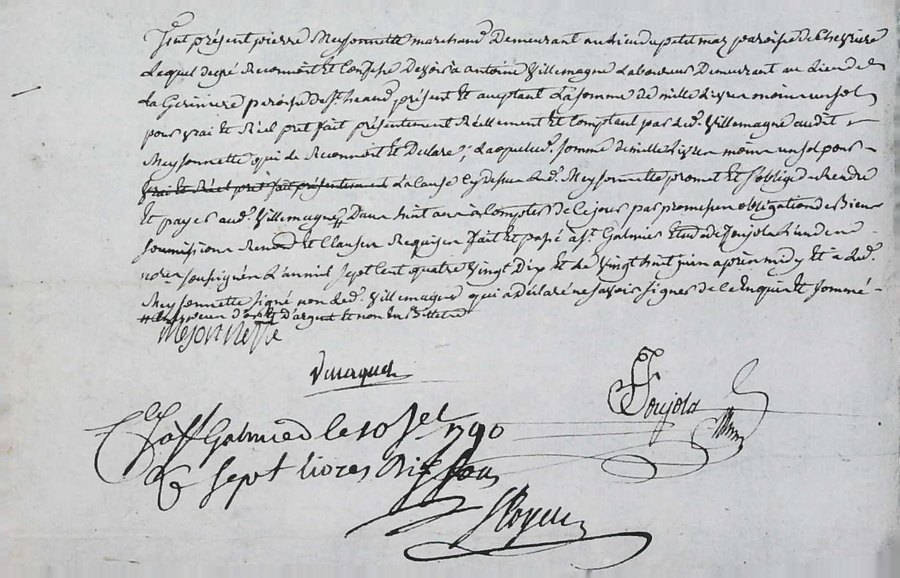 fut présent pierre Meysonnette marchand Demeurant au lieu du petit maz paroisse de Chevriere
Lequel de gré Reconnoit Et Confesse Devoir à antoine Villemagne Laboureur Demeurant au Lieu de
La Gerinière paroisse de St heand, présent Et acceptant La somme De mille Livres moins un sol
pour vrai Et Réel pret fait présentement Réellement Et Comptant par Led. Villemagne audit
Meysonnette qui le Reconnoit Et Declare, Laquelle d. somme de mille Livres moins un sol pour
vrai Et Réel prêt fait présentement La Cause Cy dessus Led. Meysonnette promet Et s'oblige de Rendre
Et payer aud. Villemagne Dans huit ans à Compter de Ce jour par promesse obligation de Biens
soumissions Renond. Et Clauses Requises fait Et passé à St. Galmier Etude de Joujola L'un des
no.res soussignés L'an mil sept Cent quatre Vingt Dix Et Le Vingt huit juin après midy Et a Led.
Meysonnette signé non Led. Villemagne qui a déclaré ne savoir signer de Ce Enquis Et sommé
d'or d'argent Et non En Billet
mesonnette
Dumaguet
Joujola
Cllé à St Galmier le 10 jel 1790
R sept livres dix sous